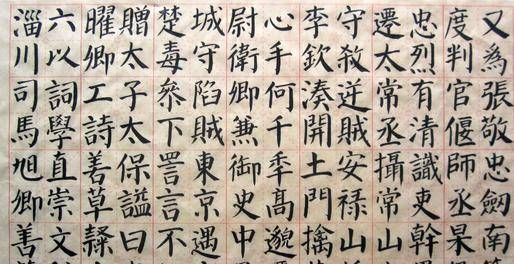 又為張敬忠劍南
度判官偃師丞杲
忠烈有清識吏幹
遷太常丞攝常山
守殺逆賊安祿山
李欽湊開土門擒
心手何千秊高邈
尉衛卿兼御史中
城守陷賊東京遇
楚毒叅下詈言不
贈太子太保謚曰
曜卿工詩善草隸
六以詞學直崇文
淄川司馬旭卿善